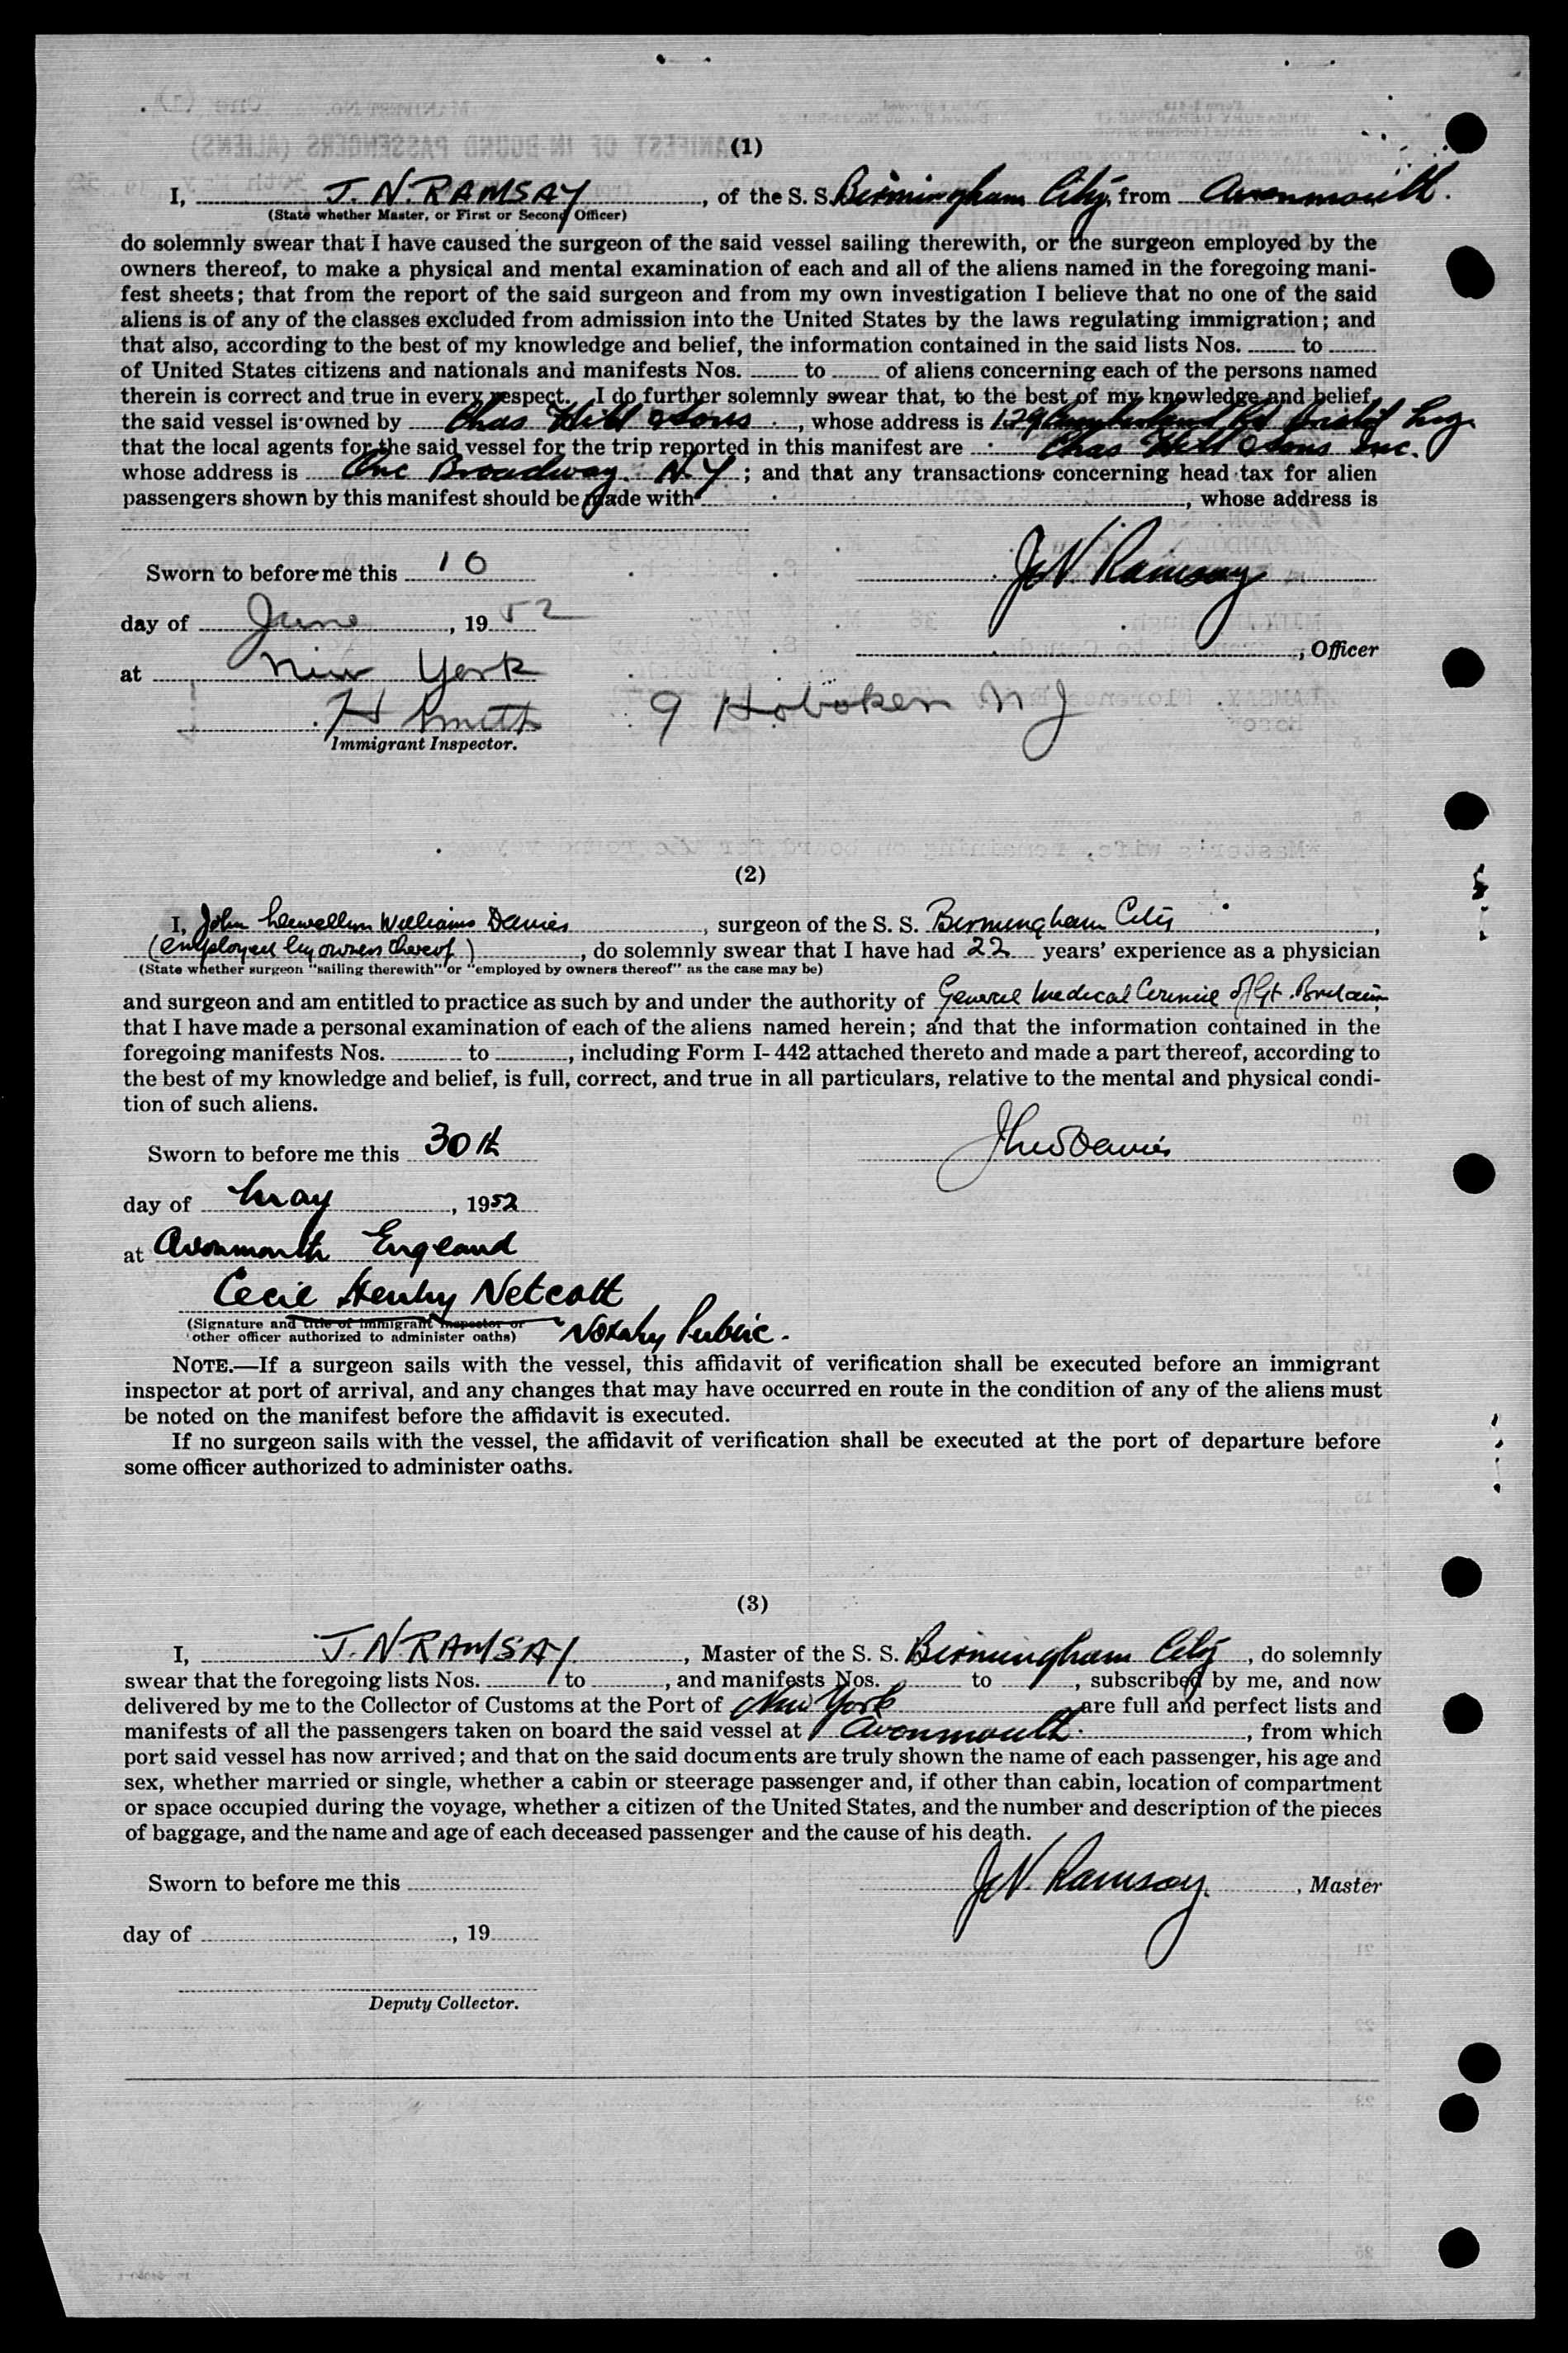 (1)
I, J. N. RAMSAY, of the S. S. Birmingham City, from Avonmouth.
(State whether Master, or First or Second Officer)
do solemnly swear that I have caused the surgeon of the said vessel sailing therewith, or the surgeon employed by the
owners thereof, to make a physical and mental examination of each and all of the aliens named in the foregoing mani-
fest sheets; that from the report of the said surgeon and from my own investigation I believe that no one of the said
aliens is of any of the classes excluded from admission into the United States by the laws regulating immigration; and
that also, according to the best of my knowledge and belief, the information contained in the said lists Nos. ........ to ........
of United States citizens and nationals and manifests Nos. ........ to ........ of aliens concerning each of the persons named
therein is correct and true in every respect. I do further solemnly swear that, to the best of my knowledge and belief,
the said vessel is owned by Chas Hill & Sons, whose address is Cumberland Rd Bristol Eng.
that the local agents for the said vessel for the trip reported in this manifest are Chas Hill & Sons Inc.
whose address is One Broadway. N.Y.; and that any transactions concerning head tax for alien
passengers shown by this manifest should be made with ........, whose address is
Sworn to before me this 10
J N Ramsay
day of June, 1952
, Officer
at New York
H Smith 9 Hoboken N J
Immigrant Inspector.
(2)
I, John Llewellyn Williams Davies, surgeon of the S. S. Birmingham City,
(employed by owners thereof), do solemnly swear that I have had 22 years' experience as a physician
(State whether surgeon "sailing therewith" or "employed by owners thereof" as the case may be)
and surgeon and am entitled to practice as such by and under the authority of General Medical Council of Gt. Britain,
that I have made a personal examination of each of the aliens named herein; and that the information contained in the
foregoing manifests Nos. ........ to ........, including Form I-442 attached thereto and made a part thereof, according to
the best of my knowledge and belief, is full, correct, and true in all particulars, relative to the mental and physical condi-
tion of such aliens.
Sworn to before me this 30th
JLWDavies
day of May, 1952
at Avonmouth England
Cecil Henry Netcott
(Signature and title of immigrant inspector or
other officer authorized to administer oaths) Notary Public.
NOTE.—If a surgeon sails with the vessel, this affidavit of verification shall be executed before an immigrant
inspector at port of arrival, and any changes that may have occurred en route in the condition of any of the aliens must
be noted on the manifest before the affidavit is executed.
If no surgeon sails with the vessel, the affidavit of verification shall be executed at the port of departure before
some officer authorized to administer oaths.
(3)
I, J. N RAMSAY, Master of the S. S. Birmingham City, do solemnly
swear that the foregoing lists Nos. ........ to ........, and manifests Nos. ........ to ........, subscribed by me, and now
delivered by me to the Collector of Customs at the Port of New York are full and perfect lists and
manifests of all the passengers taken on board the said vessel at Avonmouth., from which
port said vessel has now arrived; and that on the said documents are truly shown the name of each passenger, his age and
sex, whether married or single, whether a cabin or steerage passenger and, if other than cabin, location of compartment
or space occupied during the voyage, whether a citizen of the United States, and the number and description of the pieces
of baggage, and the name and age of each deceased passenger and the cause of his death.
Sworn to before me this ........ J N. Ramsay, Master
day of ........, 19
Deputy Collector.